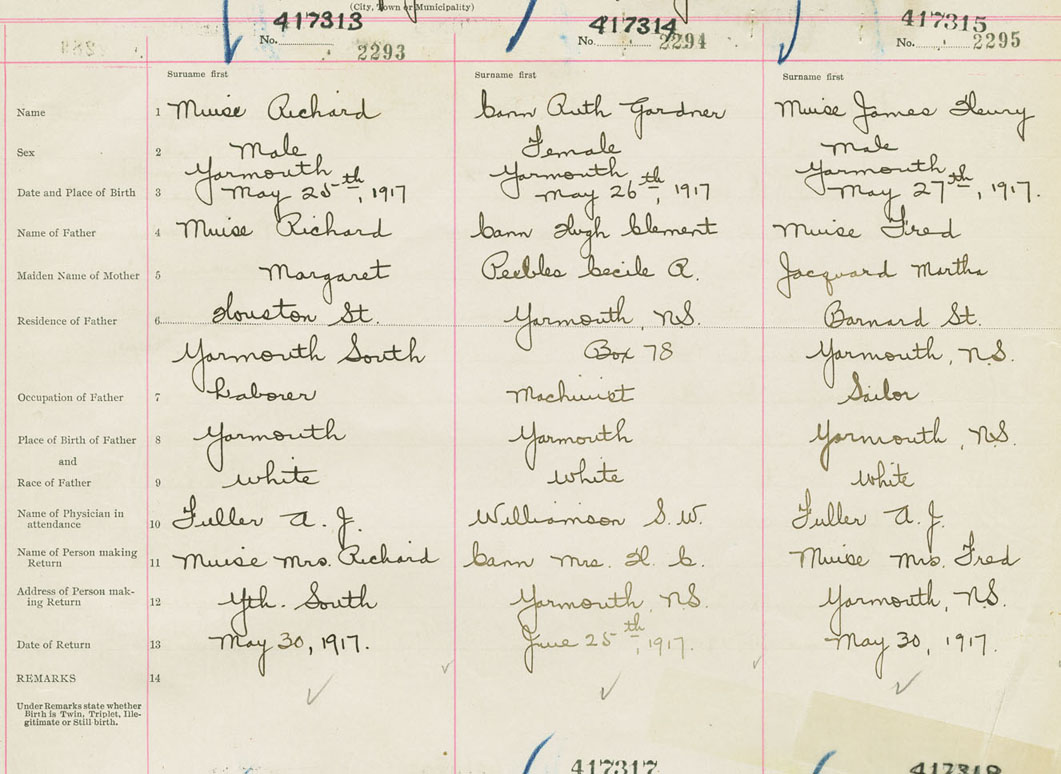 (City, Town or Municipality)
417313 417314 417315
No. 2293 No. 2294 No. 2295
Surname first Surname first Surname first
Name 1 Muise Richard Cann Ruth Gardner Muise James Henry
Sex 2 Male Female Male
Yarmouth Yarmouth Yarmouth
Date and Place of Birth 3 May 25th, 1917 May 26th, 1917 May 27th, 1917.
Name of Father 4 Muise Richard Cann Hugh Clement Muise Fred
Maiden Name of Mother 5 Margaret Peebles Cecile R. Jacquard Martha
Residence of Father 6 Houston St. Yarmouth, N.S. Barnard St.
Yarmouth South Box 78 Yarmouth, N.S.
Occupation of Father 7 Laborer Machinist Sailor
Place of Birth of Father 8 Yarmouth Yarmouth Yarmouth, N.S.
and
Race of Father 9 White White White
Name of Physician in
attendance 10 Fuller A. J. Williamson S. W. Fuller A. J.
Name of Person making
Return 11 Muise Mrs. Richard Cann Mrs. H. C. Muise Mrs. Fred
Address of Person mak-
ing Return 12 Yth. South Yarmouth, N.S. Yarmouth, N.S.
Date of Return 13 May 30, 1917. June 25th, 1917. May 30, 1917.
REMARKS 14
Under Remarks state whether
Birth is Twin, Triplet, Ille-
gitimate or Still-birth.
417317